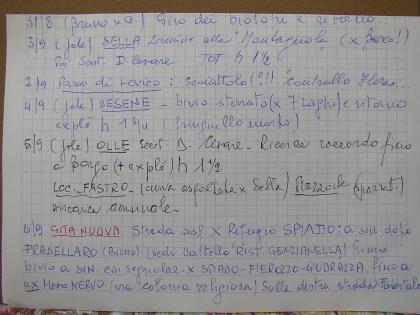 31/8 (Bruno x a.) Giro dei biotopi e ritorno...
3/9 (Jole) SELLA termine alla "Montagnola (x Parco!)
Poi Sent. D. Cesare TOT h 1 1/2
2/9 Parco di Levico: Scoiattolo (?!) "Controllo Flora...
4/9 (Jole) VESENE - bivio sterrato (x 7 Laghi) e ritorno
explò h 1 3/4 (fringuello morto)
5/9 (Jole) OLLE Sent. D. Cesare - Ricerca raccordo fino
a Borgo (+ explò) h 1 1/2
LOC. FASTRO - (curva asfaltata x Sella) Piazzole
comunale -
6/9 GITA NUOVA Strada asf. x Rifugio SPIADO: a sin. dopo
PRADELLARO (Bivio) (vedi cartello "RIST. GENZIANELLA) Primo
bivio a SIN. con segnalaz. x SPIADO - FIEROZZO - fino a
ex Maso NERVO (ora colonia religiosa) Sulla destra strada Forestale